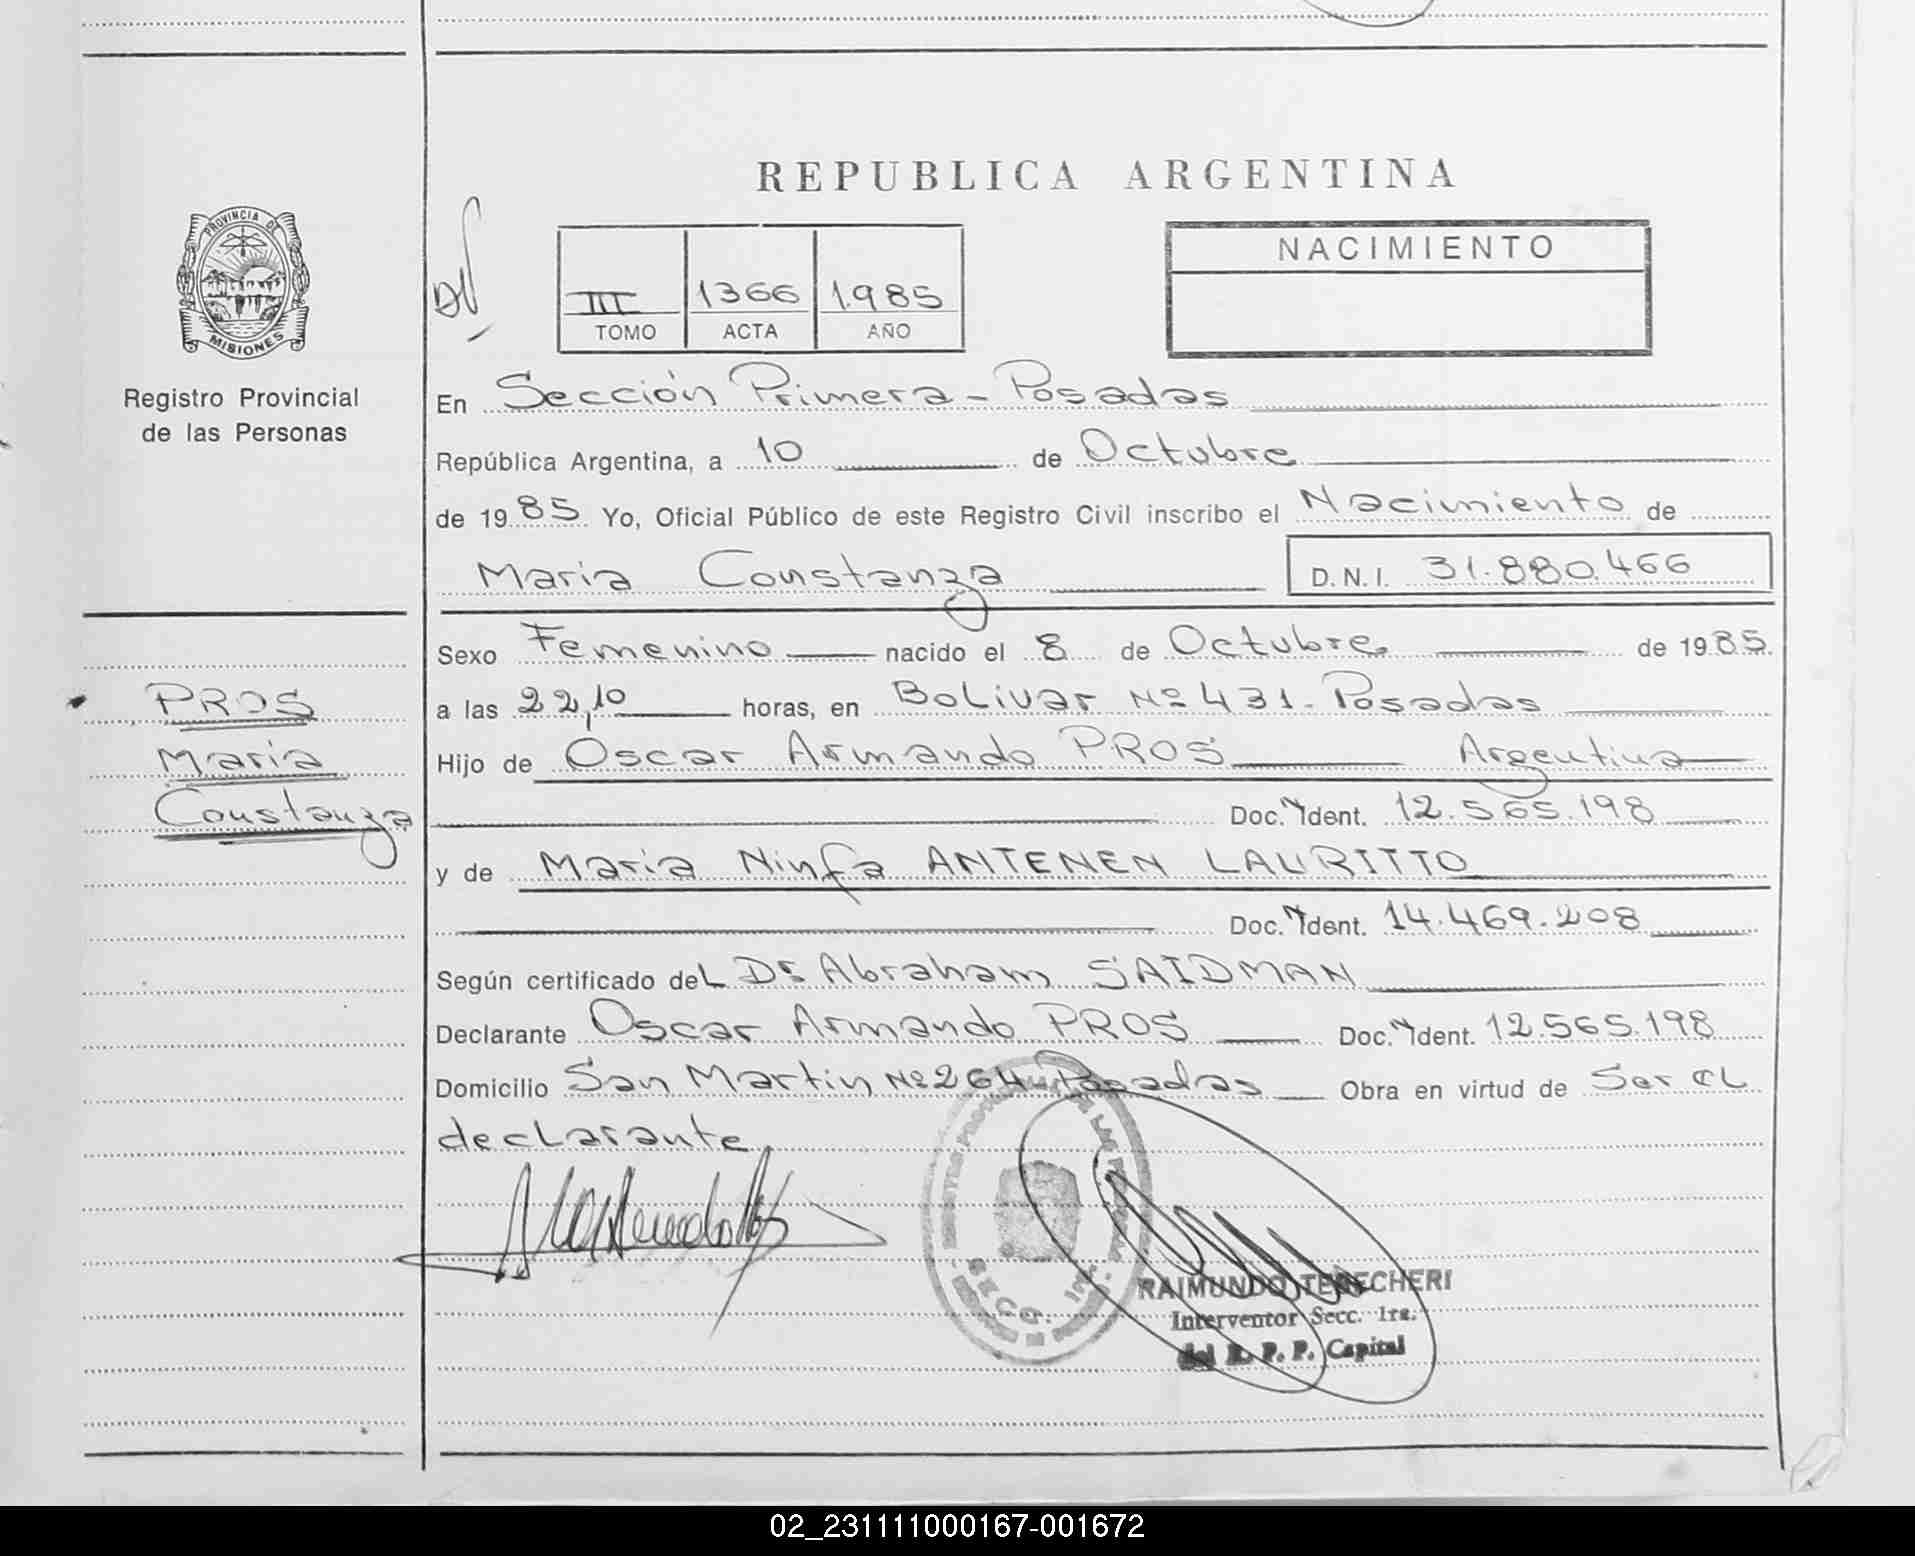 REPUBLICA ARGENTINA
PROVINCIA DE
MISIONES
Registro Provincial
de las Personas
III 1366 1.985
TOMO ACTA AÑO
NACIMIENTO
En Sección Primera - Posadas
República Argentina, a 10 de Octubre
de 1985 Yo, Oficial Público de este Registro Civil inscribo el Nacimiento de
Maria Constanza D.N.I. 31.880.466
Sexo Femenino nacido el 8 de Octubre de 1985.
a las 22,10 horas, en Bolivar Nº 431 - Posadas
Hijo de Oscar Armando PROS Argentina
Doc. N Ident. 12.565.198
y de Maria Ninfa ANTENEN LAURITTO
Doc. N Ident. 14.469.208
Según certificado del Dr Abraham SAIDMAN
Declarante Oscar Armando PROS Doc. N Ident. 12.565.198
Domicilio San Martin Nº 264 Posadas Obra en virtud de Ser el
declarante
PROS
Maria
Constanza
SECC. 1ra.
RAIMUNDO TERECHERI
Interventor Secc. 1ra.
del R. P. P. Capital
02_231111000167-001672